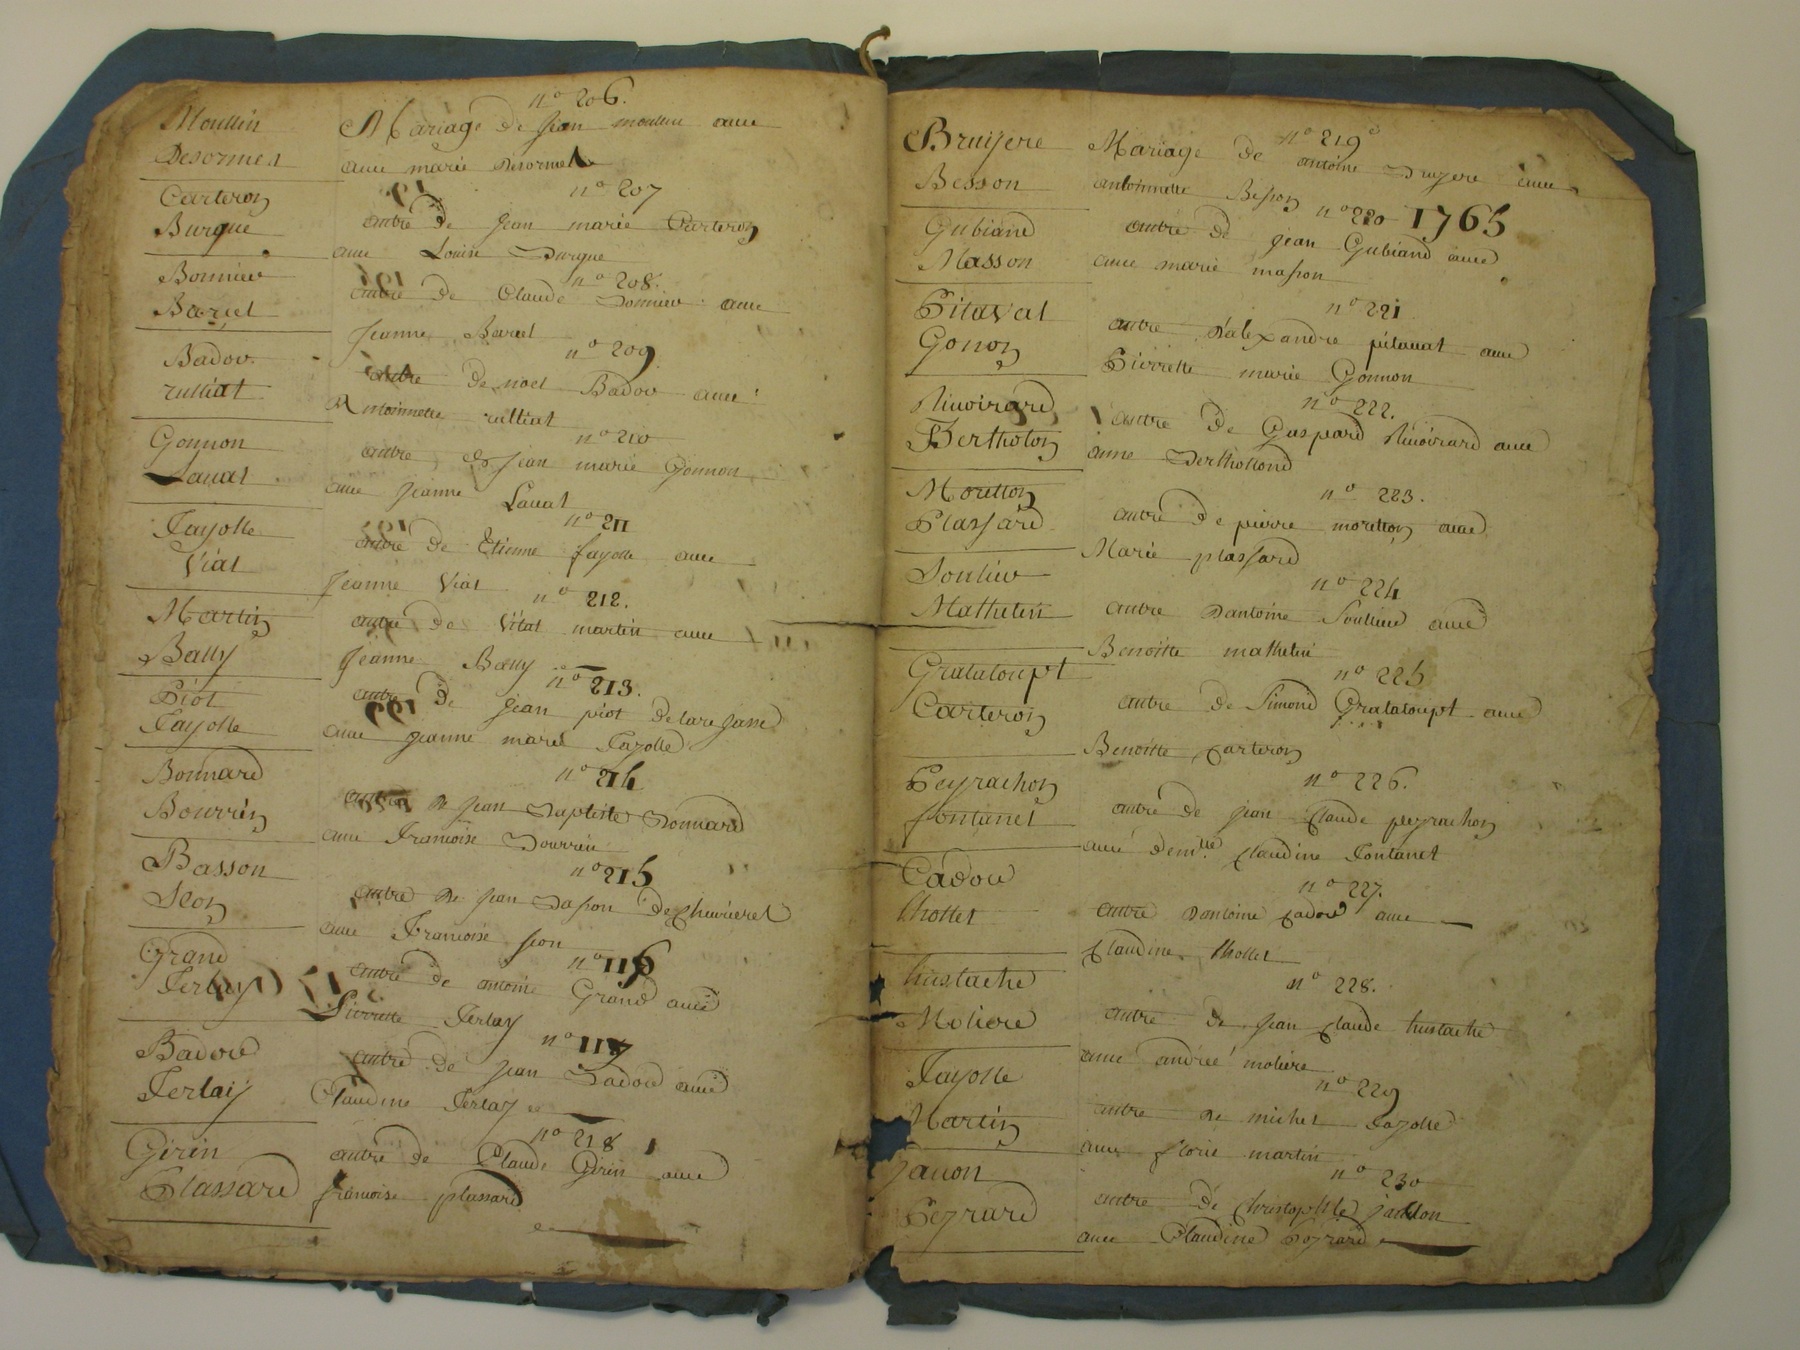 Moullin
Desormes
n° 206.
Mariage de Jean moulin avec
avec marie Desormes
Carteron
Burgue
n° 207
autre de Jean marie Carteron
avec Louise Burgue
Bonnieu
Bariel
n° 208.
autre de Claude Bonnieu avec
Jeanne Bariel
Badou
rulliat
n° 209
autre de noel Badou avec
Antoinnette rulliat
Gonnon
Laual
n° 210
autre de Jean marie Gonnon
avec Jeanne Laual
Fayolle
Vial
n° 211
autre de Etienne fayolle avec
Jeanne Vial
Martin
Bally
n° 212.
autre de Vital martin avec
Jeanne Bally
Piot
Fayolle
n° 213.
autre de Jean piot delarejasse
avec Jeanne marie Fayolle
Bonnard
Bourrin
n° 214
autre de Jean Baptiste Bonnard
avec Francoise Bourrin
Basson
Seon
n° 215
autre de Jean Basson de Cheurieres
avec Francoise seon
Grand
Ferlay
n° 116
autre de antoine Grand avec
Pierrette Ferlay
Badou
Ferlay
n° 117
autre de Jean Badou avec
Claudine Ferlay
Girin
Plassard
n° 218
autre de Claude Girin avec
francoise plassard
Bruyere
Besson
n° 219
Mariage de antoine Bruyere avec
antoinnette Besson
Gubiand
Masson
n° 220 1765
autre de Jean Gubiand avec
avec marie masson
Pitaval
Gonon
n° 221
autre d'alexandre pitaval avec
Pierrette marie Gonnon
Riuoirard
Bertholon
n° 222.
autre de Gaspard Riuoirard avec
anne Berthollond
Moretton
Plassard
n° 223.
autre de pierre moretton avec
Marie plassard
Soulieu
Mathelin
n° 224
autre Dantoine Soulieu avec
Benoitte mathelin
Grataloupt
Carteron
n° 225
autre de Simond Grataloupt avec
Benoitte Carteron
Peyrachon
fontanel
n° 226.
autre de Jean Claude peyrachon
avec demlle Claudine Fontanel
Cadou
thollet
n° 227.
autre Dantoine Cadou avec
Claudine thollet
hustache
Moliere
n° 228.
autre de Jean Claude hustache
avec andrée moliere
Fayolle
Martin
n° 229
autre de michel Fayolle
avec florie martin
Jauon
Peyrard
n° 230
autre de Christophle
avec Claudine Peyrard